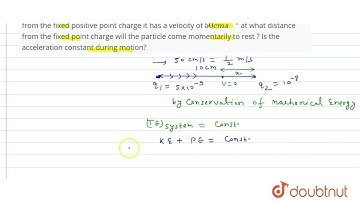 from the fixed positive point charge it has a velocity of 50cms⁻¹ at what distance
from the fixed point charge will the particle come momentarily to rest ? Is the
acceleration constant during motion?
→ 50 cm/s = 1/2 m/s
10cm x
q₁ = 5×10⁻⁹ v=0 q₂ = 10⁻⁸
by Conservation of Mechanical Energy
(TE)system = Const.
KE + PE = Const.
doubtnut